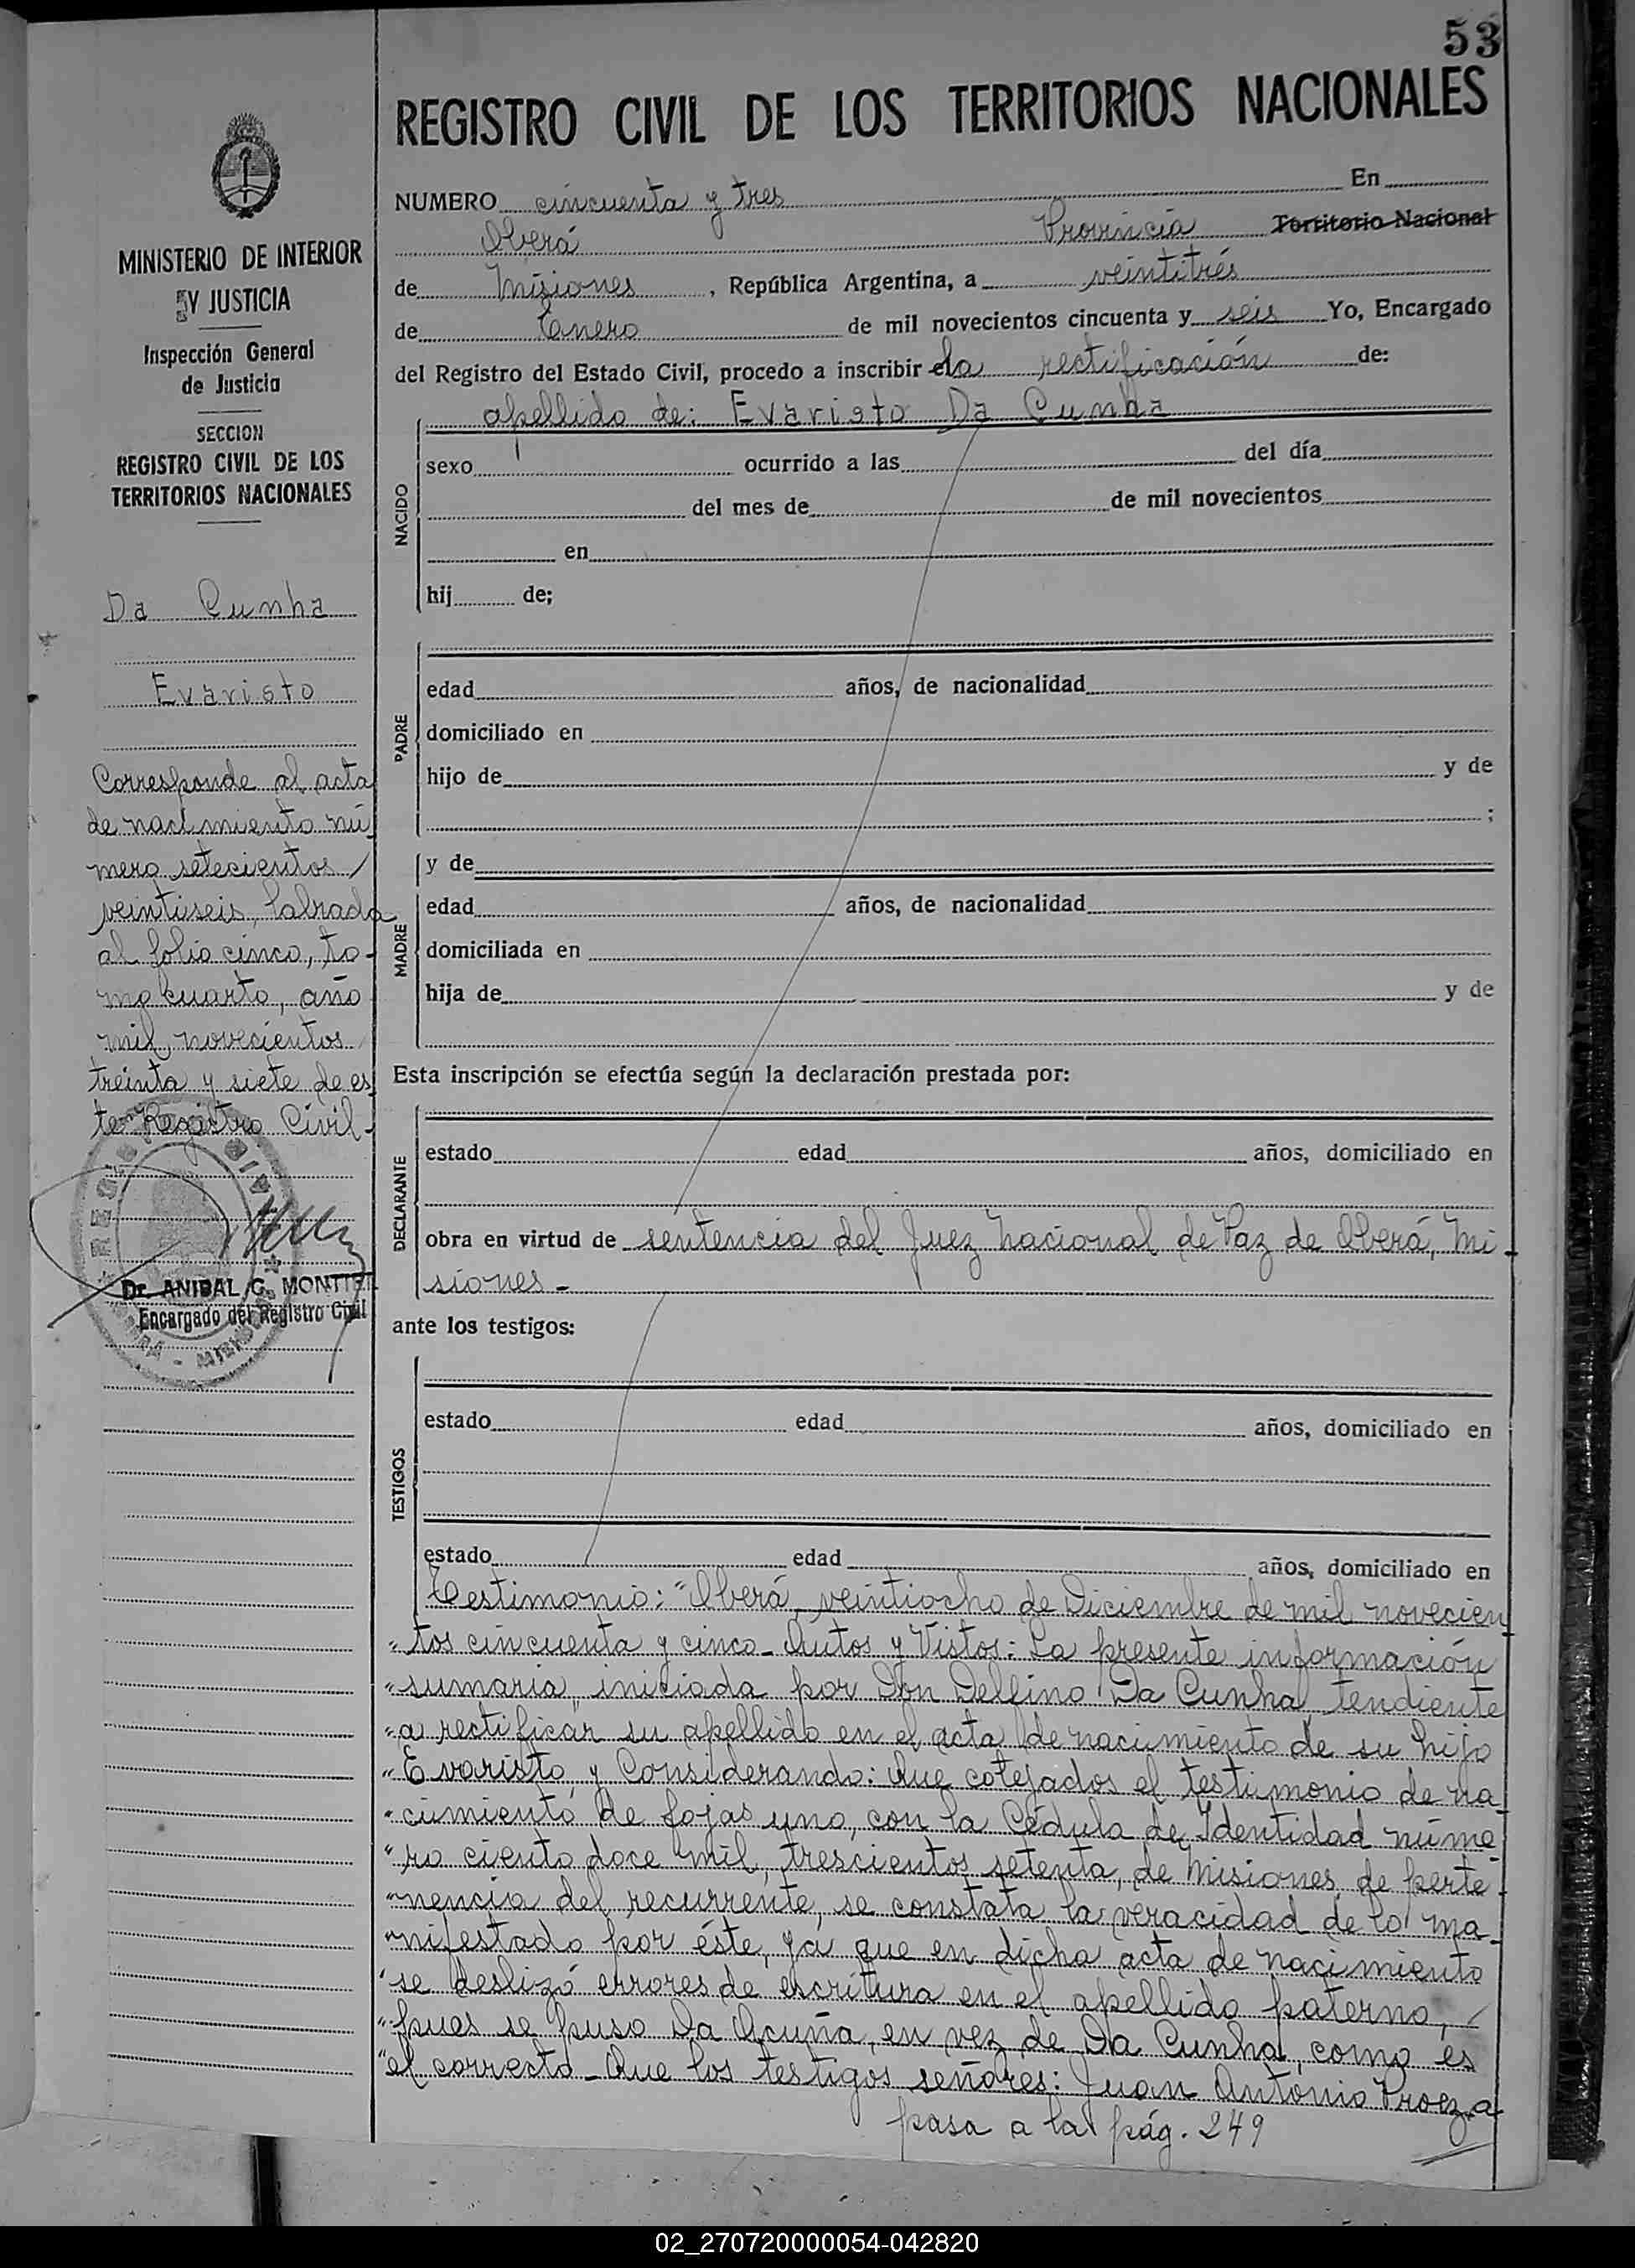 53
REGISTRO CIVIL DE LOS TERRITORIOS NACIONALES
MINISTERIO DE INTERIOR
Y JUSTICIA
Inspección General
de Justicia
SECCION
REGISTRO CIVIL DE LOS
TERRITORIOS NACIONALES
Da Cunha
Evaristo
Corresponde al acta
de nacimiento nú
mero setecientos /
veintiseis, labrada
al folio cinco, to-
mo cuarto, año
mil novecientos
treinta y siete de es
te Registro Civil-
Dr. ANIBAL G. MONTIEL
Encargado del Registro Civil
NUMERO cincuenta y tres En
Oberá Provincia Territorio Nacional
de Misiones, República Argentina, a veintitrés
de Enero de mil novecientos cincuenta y seis Yo, Encargado
del Registro del Estado Civil, procedo a inscribir el la rectificación de:
apellido de: Evaristo Da Cunha
NACIDO
sexo ocurrido a las del día
del mes de de mil novecientos
en
hij de;
PADRE
edad años, de nacionalidad
domiciliado en
hijo de y de
;
y de
MADRE
edad años, de nacionalidad
domiciliada en
hija de y de
Esta inscripción se efectúa según la declaración prestada por:
DECLARANTE
estado edad años, domiciliado en
obra en virtud de sentencia del Juez Nacional de Paz de Oberá, Mi-
siones-
ante los testigos:
TESTIGOS
estado edad años, domiciliado en
estado edad años, domiciliado en
Testimonio: "Oberá, veintiocho de Diciembre de mil novecien
"tos cincuenta y cinco- Autos y Vistos: La presente información
"sumaria, iniciada por Don Delfino Da Cunha, tendiente
"a rectificar su apellido en el acta de nacimiento de su hijo
"Evaristo, y Considerando: Que cotejados el testimonio de na
"cimiento de fojas uno, con la Cédula de Identidad núme
"ro ciento doce mil, trescientos setenta, de Misiones, de perte-
"nencia del recurrente, se constata la veracidad de lo ma-
"nifestado por éste, ya que en dicha acta de nacimiento
"se deslizó errores de escritura en el apellido paterno, /
"pues se puso Da Acuña, en vez de Da Cunha, como es
"el correcto- Que los testigos señores: Juan Antonio Proeza
pasa a la pág. 249
02_270720000054-042820